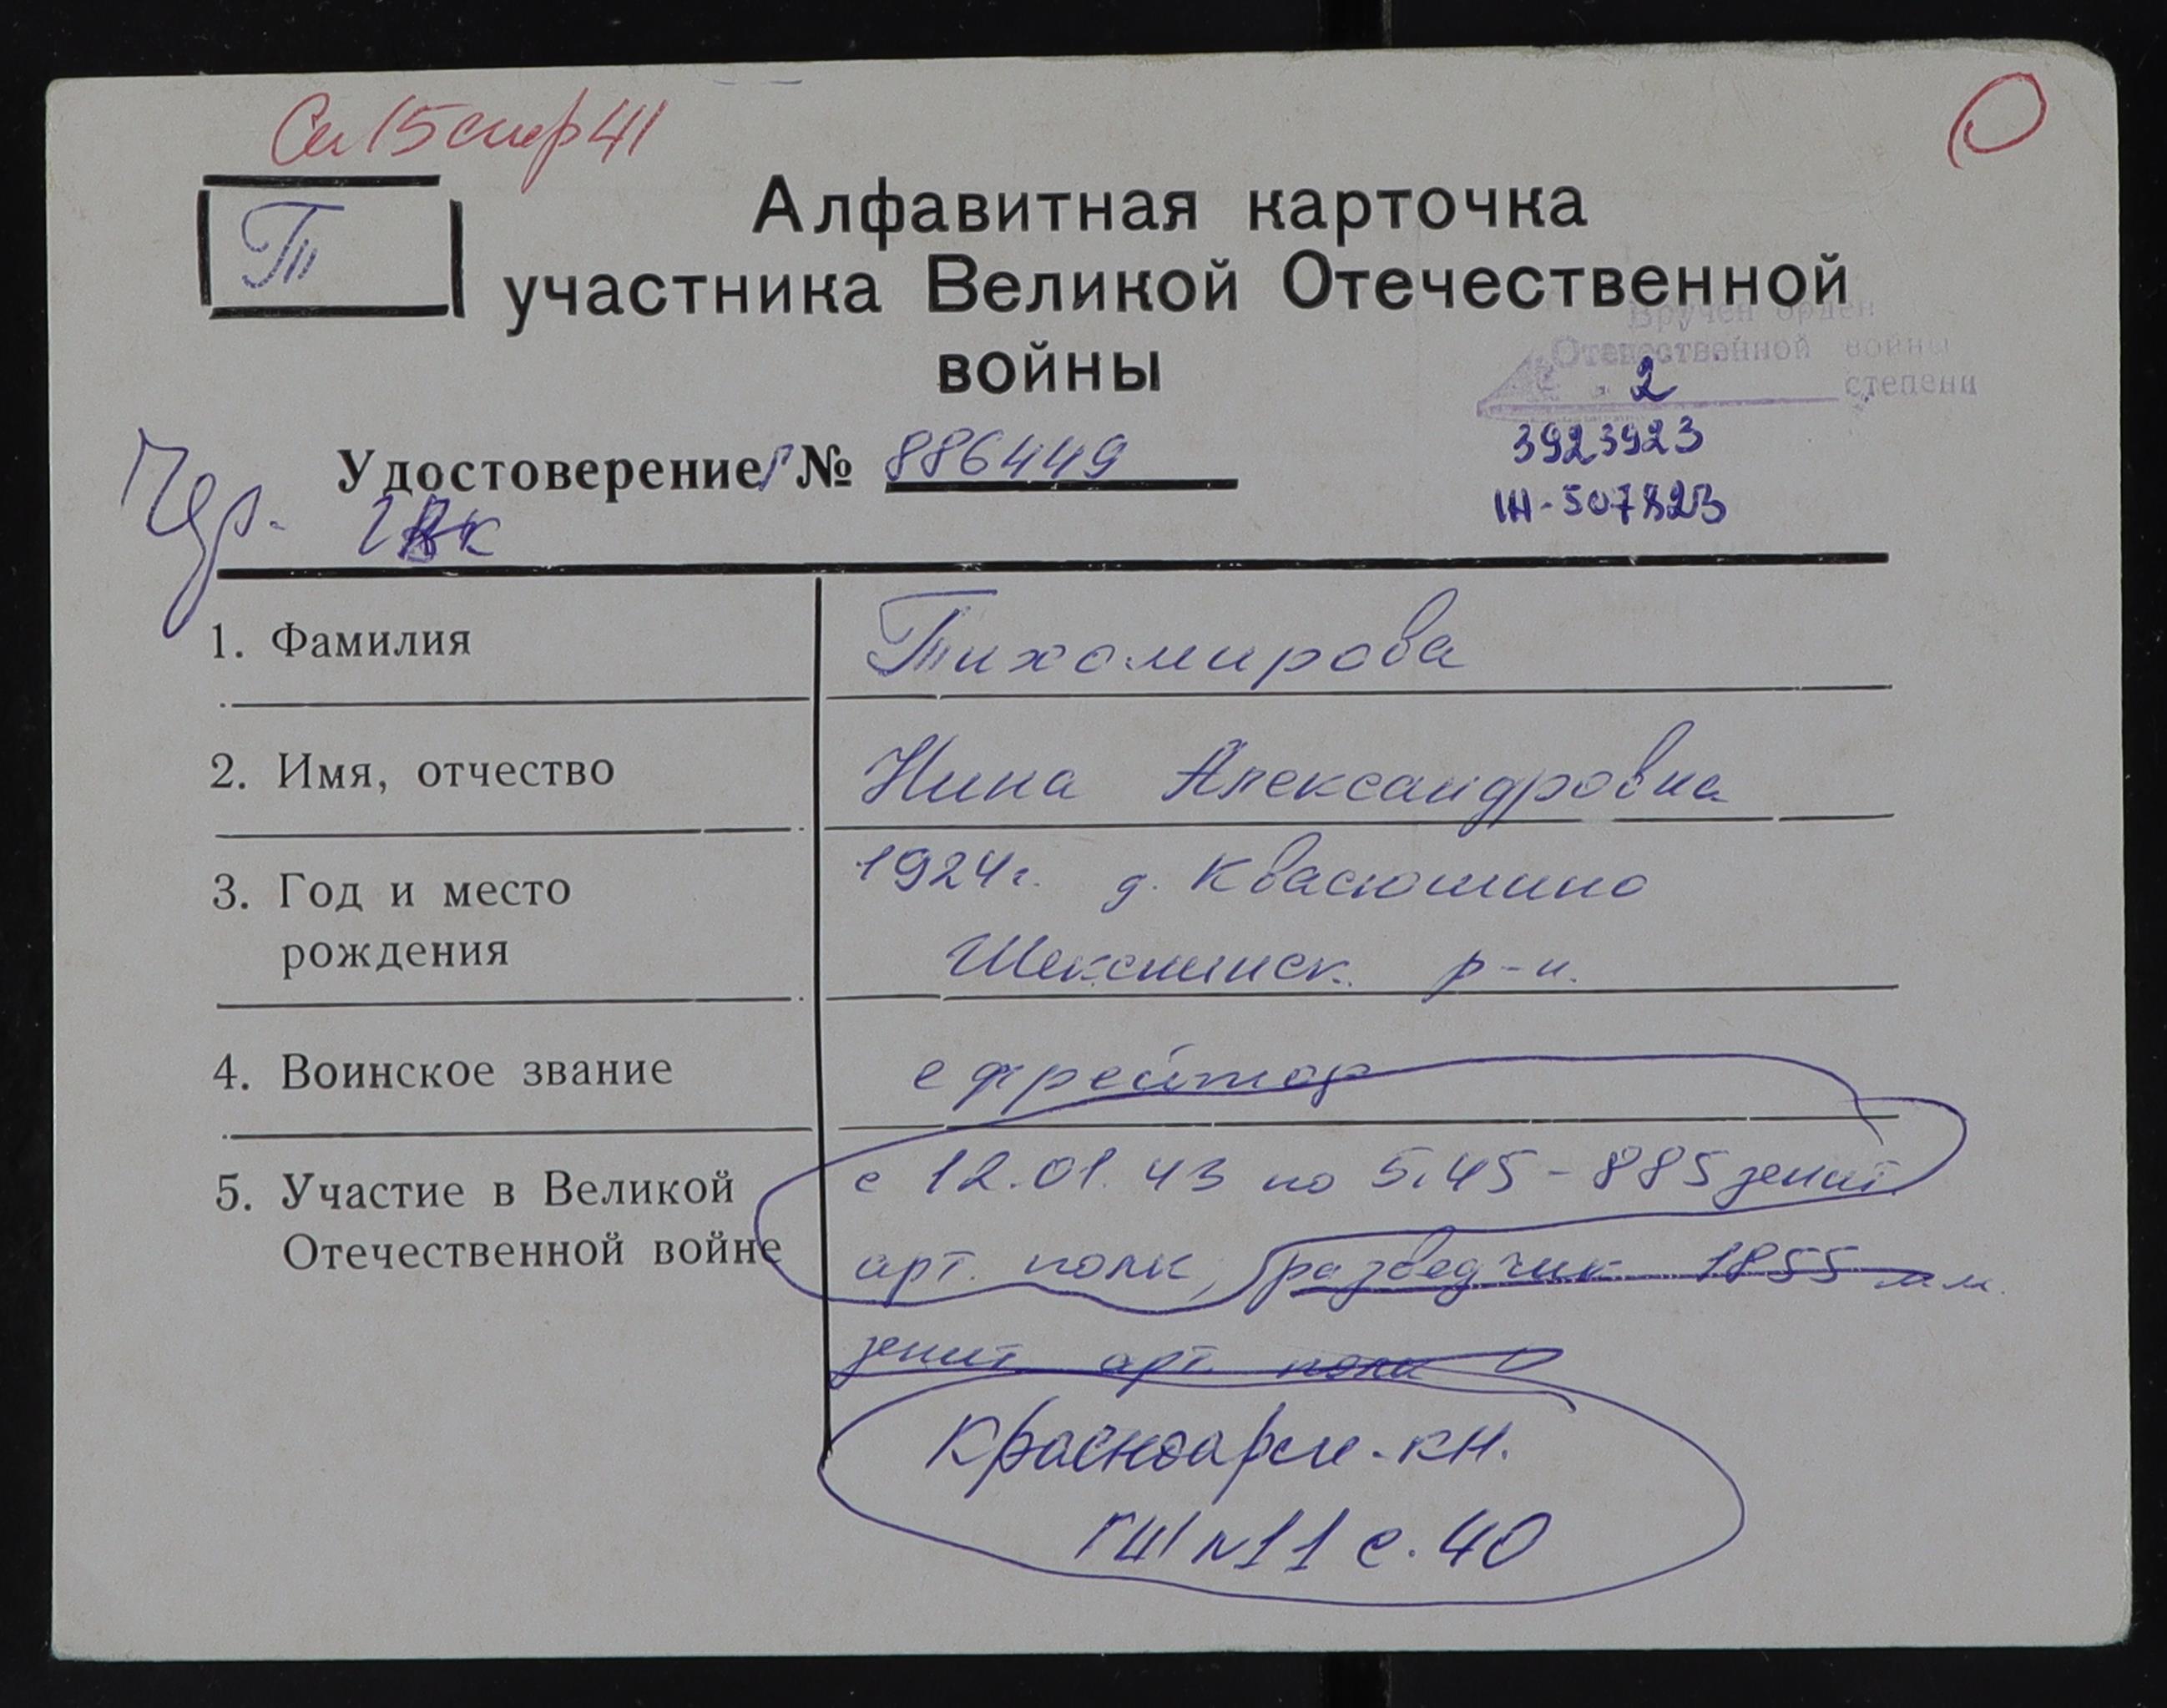 Сп 15 стр 41
Т
Алфавитная карточка
участника Великой Отечественной
войны
Вручен орден
Отечественной войны
2 степени
3923923
Удостоверение Г № 886449
1Н-507823
1. Фамилия Тихомирова
2. Имя, отчество Нина Александровна
3. Год и место 1924г. д. Квасюшино
рождения Шекснинск. р-н.
4. Воинское звание ефрейтор
5. Участие в Великой с 12.01.43 по 5.45 - 885 зенит.
Отечественной войне арт. полк, разведчик 1855 м.м.
зенит. арт. полк
Красноарм - кн.
ГШ №11 с. 40